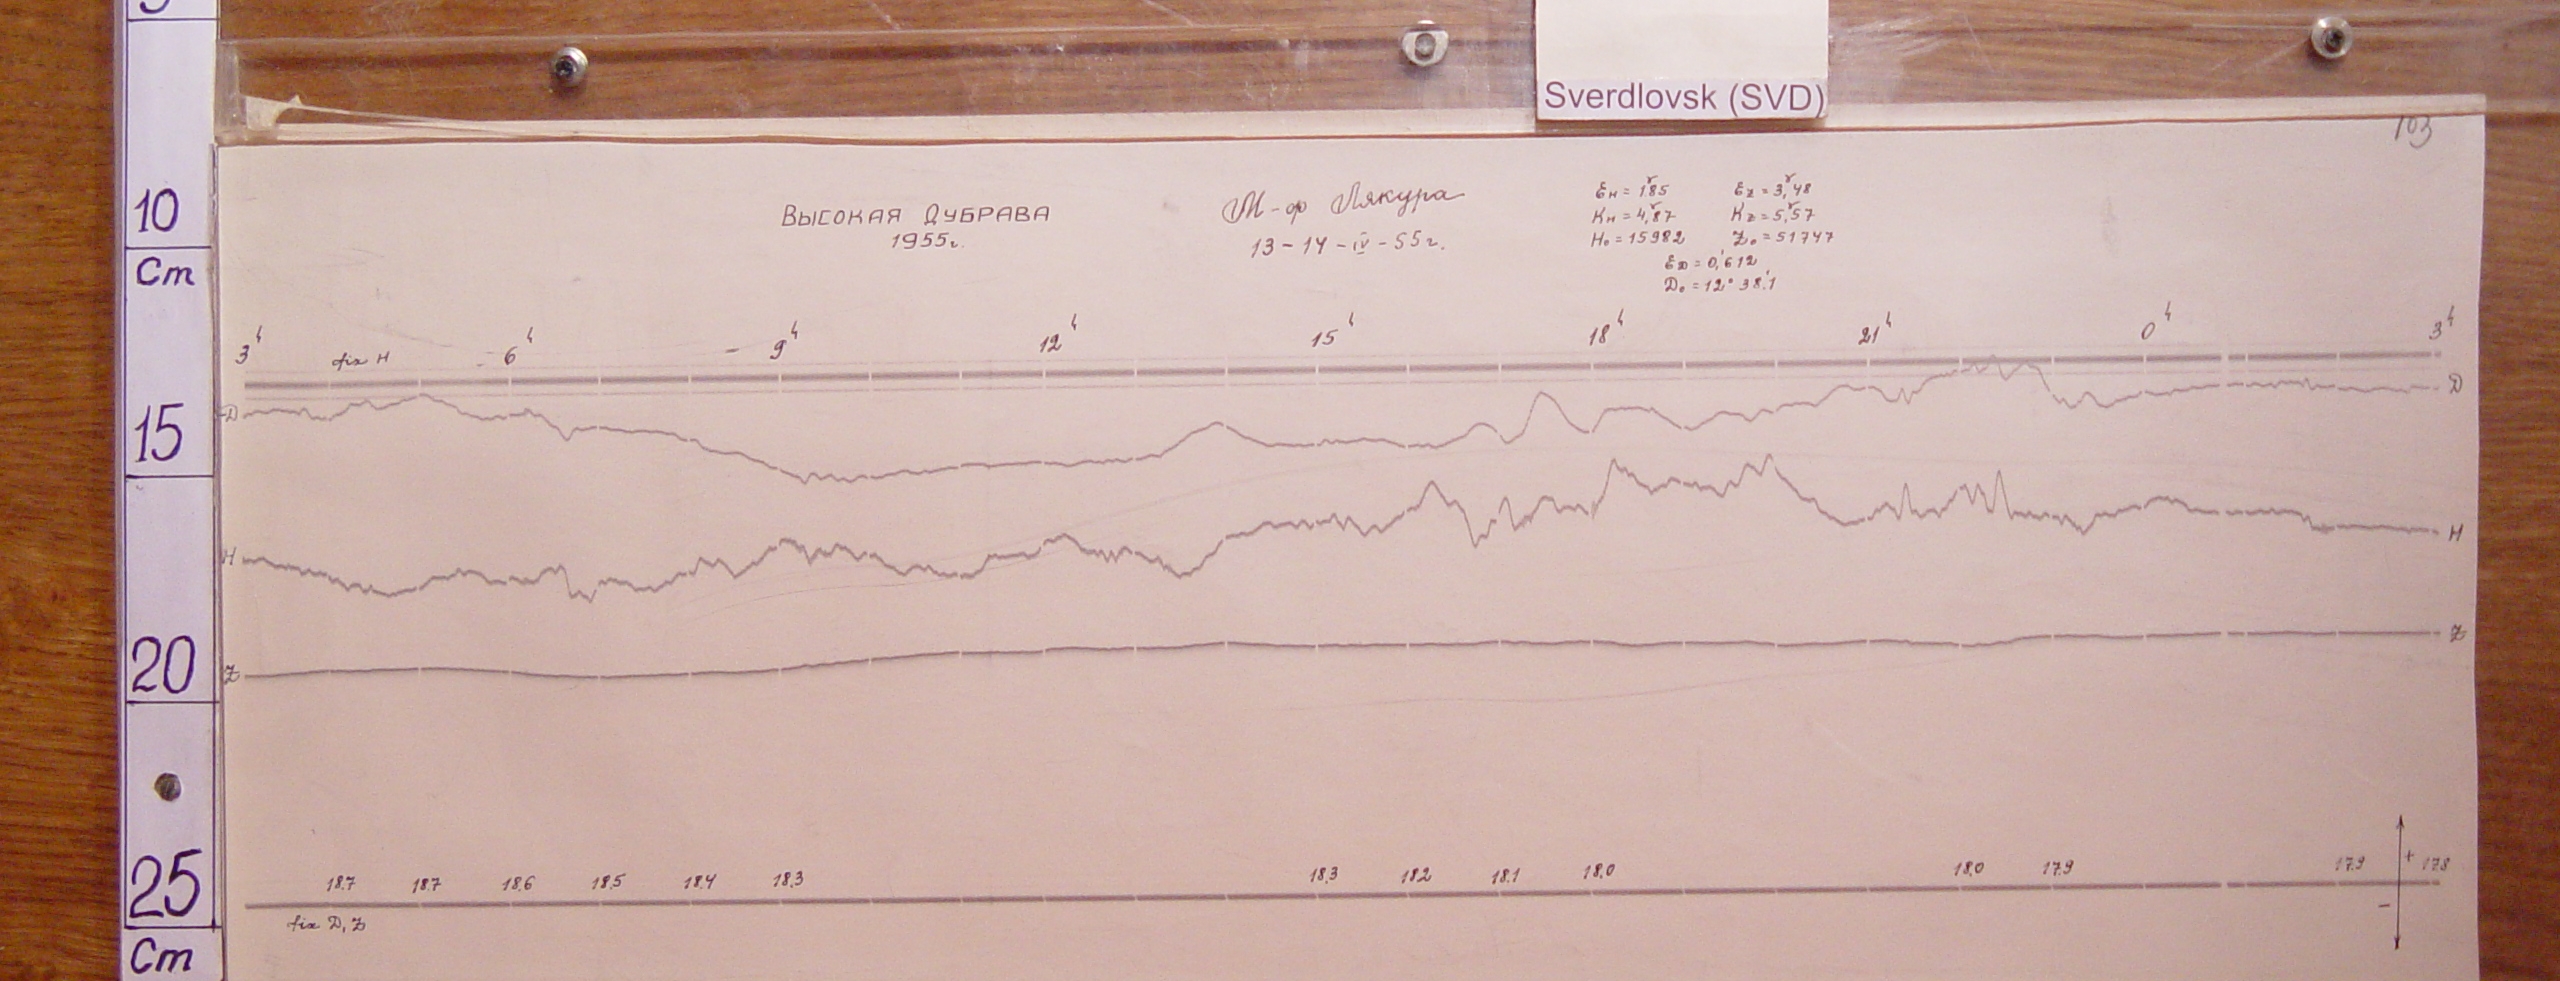 5
Sverdlovsk (SVD)
103
10
Cm
ВЫСОКАЯ ДУБРАВА
1955г.
М-ф Лякура
13-14-IV-55г.
Ɛн = 1,γ85 Ɛz = 3,γ48
Kн = 4,γ87 Kz = 5,γ57
H₀ = 15982 Z₀ = 51747
ƐD = 0,'612
D₀ = 12° 38,'1
3ч fix H 6ч 9ч 12ч 15ч 18ч 21ч 0ч 3ч
D D
15
H H
20
Z Z
18.7 18.7 18.6 18.5 18.4 18.3 18.3 18.2 18.1 18.0 18.0 17.9 17.9 + 17.8
25
-
fix D, Z
Cm